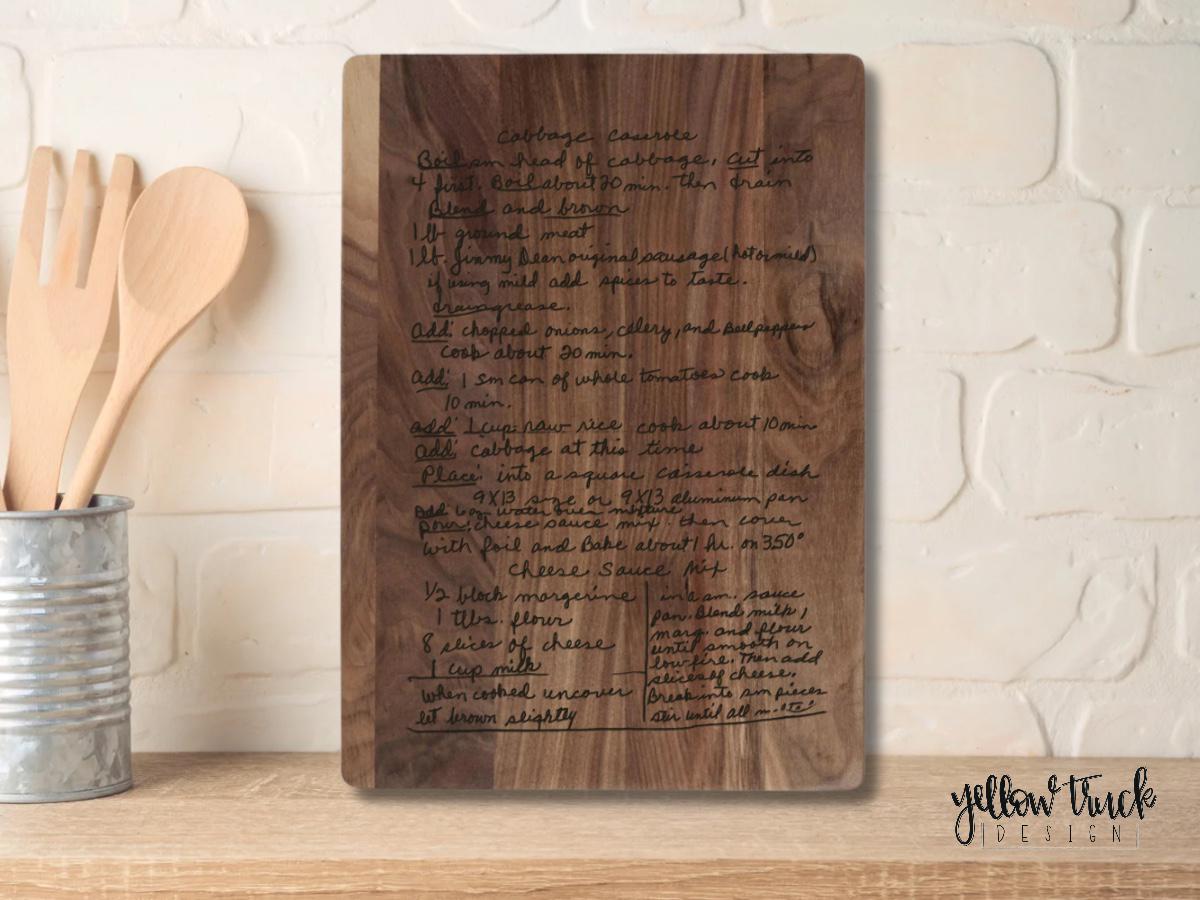 Cabbage Caserole
Boil sm head of cabbage, cut into
4 first. Boil about 20 min. then drain
Blend and brown
1 lb ground meat
1 lb. Jimmy Dean original sausage (hot or mild)
if using mild add spices to taste.
drain grease.
Add: chopped onions, celery, and Bellpeppers
Cook about 20 min.
add: 1 sm can of whole tomatoes cook
10 min.
add: 1 cup raw rice cook about 10 min
add: cabbage at this time
Place: into a square casserole dish
9X13 size or 9X13 aluminum pan
Add 6 oz water over mixture
pour: cheese sauce mix. then cover
with foil and Bake about 1 hr. on 350°
Cheese Sauce Mix
1/2 block margerine
1 tlbs. flour
8 slices of cheese
1 cup milk
when cooked uncover
let brown slightly
in a sm. sauce
pan. Blend milk,
marg. and flour
until smooth on
low fire. Then add
slices of cheese.
Break into sm pieces
stir until all
yellow truck
DESIGN